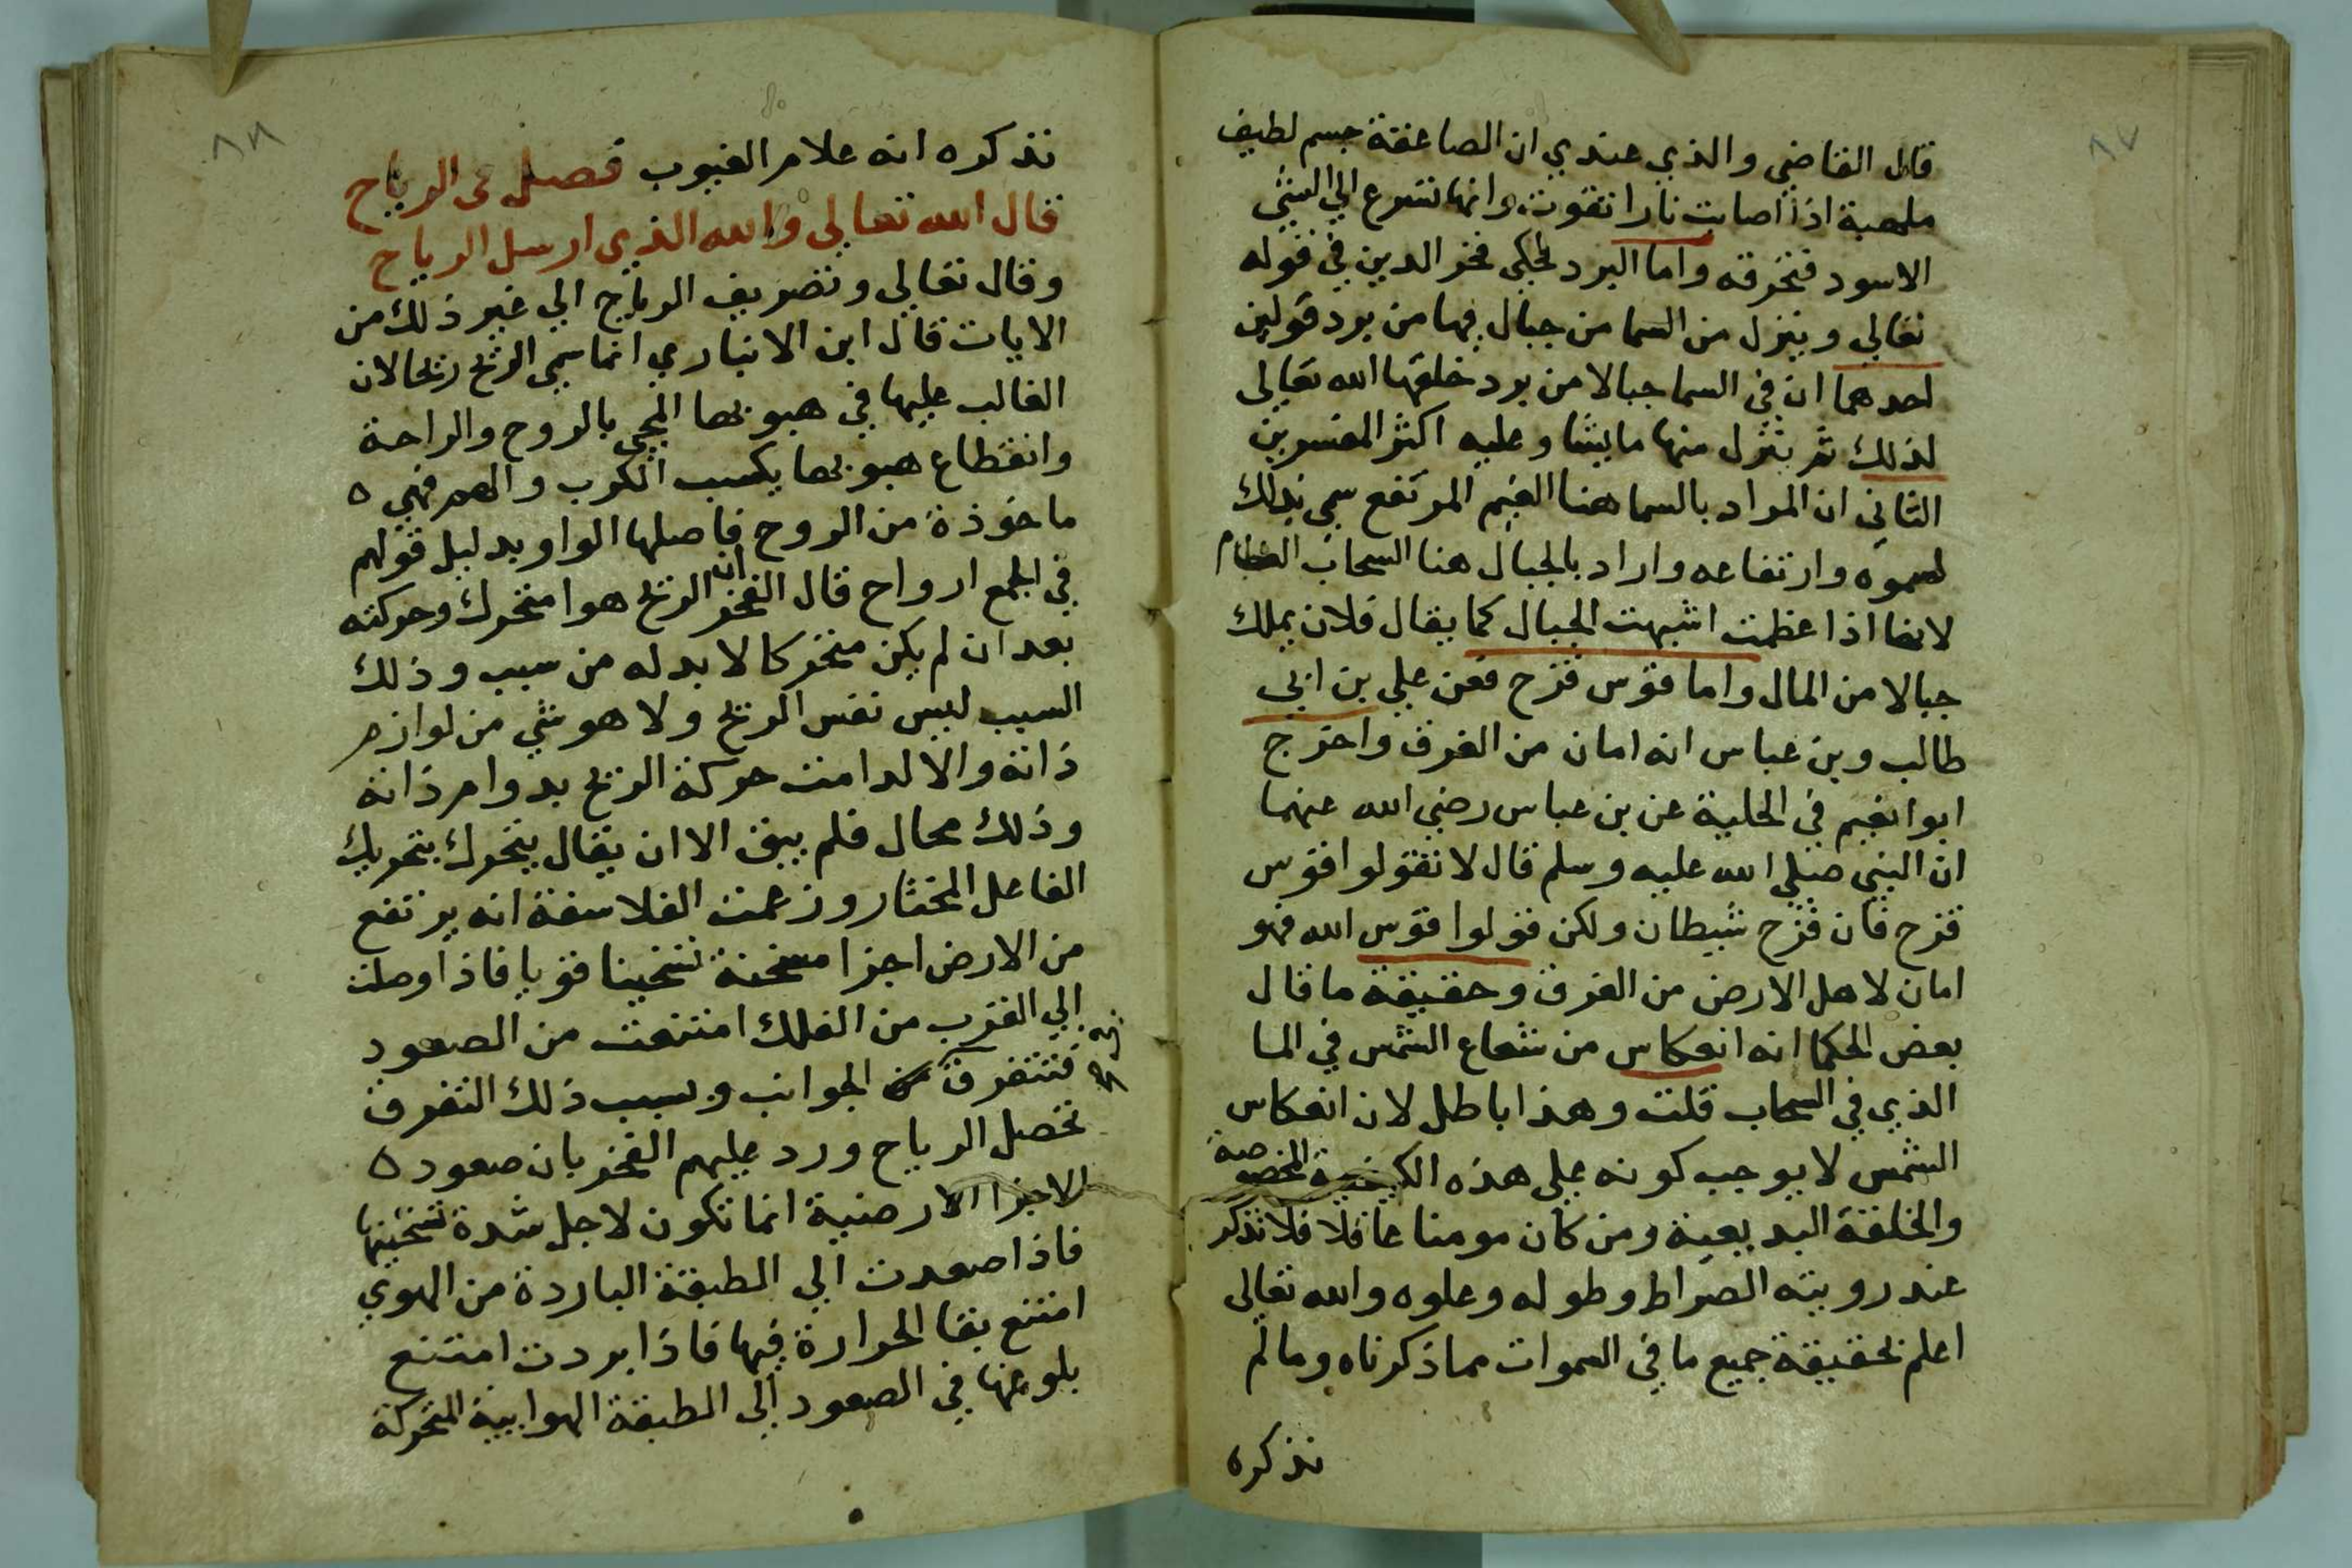 ٨٧
قال القاضي والذي عندي ان الصاعقة جسم لطيف
ملهبة اذا اصابت نارا تقوت وانها تسرع الي الشي
الاسود فتحرقه واما البرد فحكي فخر الدين في قوله
تعالي وينزل من السما من جبال فيها من برد قولين
احدهما ان في السما جبالا من برد خلقها الله تعالي
لذلك ثم ينزل منها ما يشا وعليه اكثر المفسرين
الثاني ان المراد بالسما هنا الغيم المرتفع سمي بذلك
لسموه وارتفاعه واراد بالجبال هنا السحاب العظام
لانها اذا عظمت اشبهت الجبال كما يقال فلان يملك
جبالا من المال واما قوس قزح فعن علي بن ابي
طالب وبن عباس انه امان من الغرق واخرج
ابوا نعيم في الحلية عن بن عباس رضي الله عنهما
ان النبي صلي الله عليه وسلم قال لا تقولوا قوس
قزح فان قزح شيطان ولكن قولوا قوس الله فهو
امان لاهل الارض من الغرق وحقيقة ما قال
بعض الحكما انه انعكاس من شعاع الشمس في الما
الذي في السحاب قلت وهذا باطل لان انعكاس
الشمس لا يوجب كونه علي هذه الكيفية المخصوصة
والخلقة البديعية ومن كان مومنا عاقلا فلا تذكر
عند رويته الصراط وطوله وعلوه والله تعالي
اعلم بحقيقة جميع ما في السموات مما ذكرناه وما لم
نذكره
٨٨
نذكره انه علام الغيوب فصل في الرياح
قال الله تعالي والله الذي ارسل الرياح
وقال تعالي وتصريف الرياح الي غير ذلك من
الايات قال ابن الانباري انما سمي الريح ريحا لان
الغالب عليها في هبوبها المجي بالروح والراحة
وانقطاع هبوبها يكسب الكرب والهم فهي ه
ماخوذة من الروح فاصلها الواو بدليل قولهم
في الجمع ارواح قال الفخر ان الريح هوا متحرك وحركته
بعد ان لم يكن متحركا لا بد له من سبب وذلك
السبب ليس نفس الريح ولا هو شي من لوازم
ذاته والا لدامت حركة الريح بدوام ذاته
وذلك محال فلم يبق الا ان يقال يتحرك بتحريك
الفاعل المختار وزعمت الفلاسفة انه يرتفع
من الارض اجزا مسخنة تسخينا قويا فاذا وصلت
الي القرب من الفلك امتنعت من الصعود
فتتفرق من الجوانب وبسبب ذلك التفرق
تحصل الرياح ورد عليهم الفخر بان صعود ه
الاجزا الارضية انما تكون لاجل شدة تسخينها
فاذا صعدت الي الطبقة الباردة من الهوي
امتنع بقا الحرارة فيها فاذا بردت امتنع
بلوغها في الصعود الي الطبقة الهوايية المتحركة